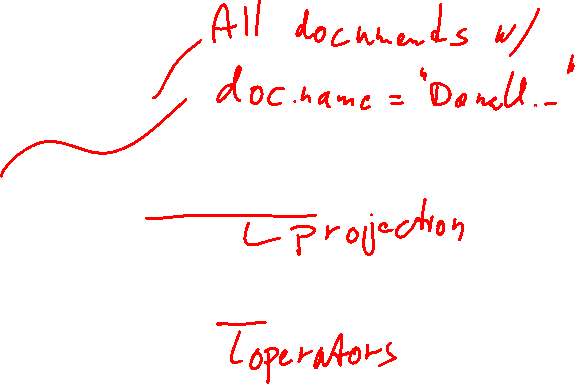 All documents w/
doc.name = "Donald..."
Projection
operators